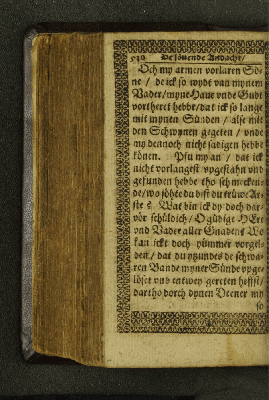 530 De sövende Andacht/
Och my armen vorlaren Sö-
ne / de ick so wydt van mynem
Vader/ myne Haue vnde Gudt
vortheret hebbe/ dat ick so lange
mit mynen Sünden / alse mit
den Schwynen gegeten / vnde
my dennoch nicht sadigen hebbe
könen. Pfu my an / dat ick
nicht vorlangest vpgestahn vnd
gefunden hebbe tho
de/ wo du bist du trüwe Ar-
ste? Wat bin ick dy doch dar-
vör schüldich/ O güdige HEre
vnd Vader aller Gnaden? Wo
kan ickt doch nümmer vorgel-
den / dat du yzundes de schwa-
ren Bande myner Sünde vpge-
löset vnd entwey gereten heffst/
dartho dorch dynen Deener my
so